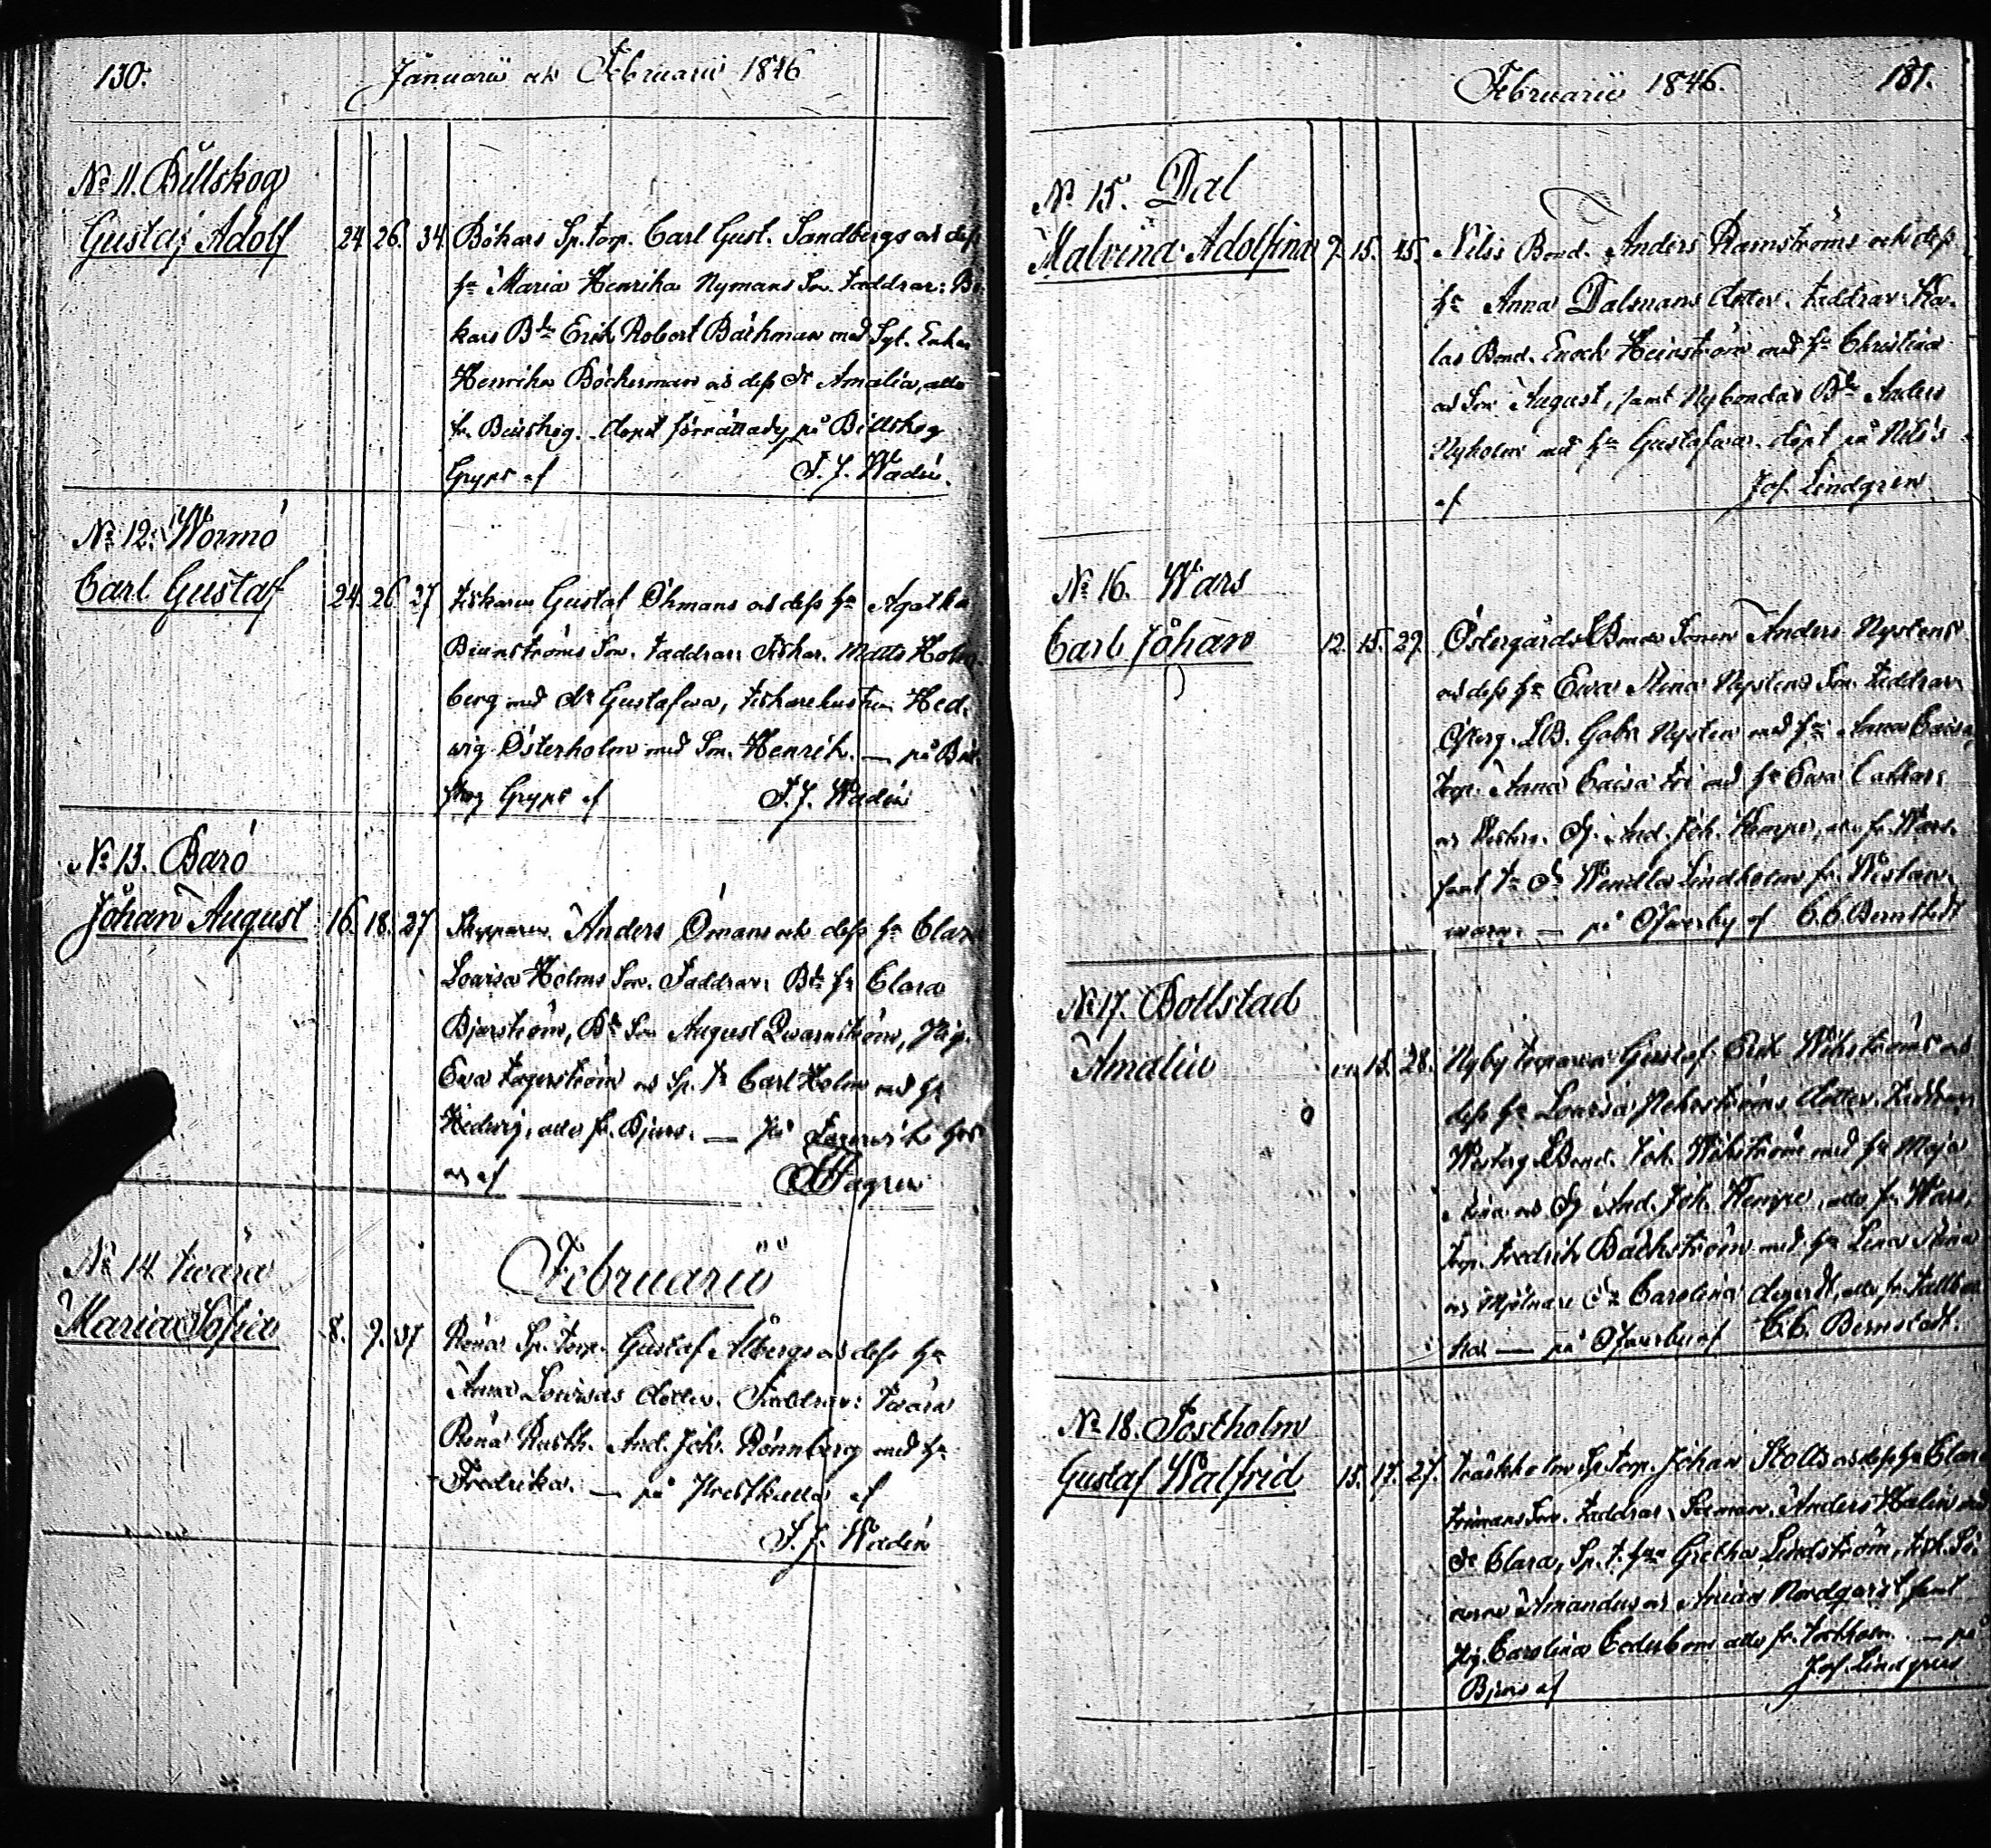 130.
Januarii och Februarii 1846
No 11. Billskog
Gustaf Adolf 24. 26. 34. Bökars Sp. torp. Carl Gust. Sandbergs och dess
hu Maria Henrika Nymans Son. Faddrar: Bö-
kars Bde Erik Robert Bäckman med Sgl. Enkan
Henrika Böckerman och dess Dr Amalia, alla
fr. Billskog. Dopet förrättades på Billskog
Gryps af F. J. Wadén.
No 12. Wormö
Carl Gustaf 24. 26. 27 Fiskaren Gustaf Öhmans och dess hu Agatha
Biurströms Son. Faddrar: Fiskar. Matts Holm-
berg med Dr Gustafva, fiskarehustrun Hed-
wig Österholm med Son Henrik. — på Bill-
skog Gryps af F. J. Wadén
No 13. Barö
Johan August 16. 18. 27 Skepparen Anders Ömans och dess hu Clara
Lovisa Holms Son. Faddrar: Bde hu Clara
Bjurström, Bde Son August Qvarnström, Pig.
Eva Fagerström och Sp. T. Carl Holm med hu
Hedwig, alla fr. Bjurs. — På Fagervik
af Fagren
Februarii
No 14. Tvärä
Maria Sofia 8. 9. 37 Rönä Sp. torp. Gustaf Albergs och dess hu
Anna Lovisas dotter. Faddrar: Tvärä
Rönä Rusth. And. Joh. Rönnberg med hu
Fredrika. — på Prestkulla af
F. J. Wadén
Februarii 1846. 131.
No 15. Dal
Malvina Adolfina 7. 15. 45. Nilsis Bond. Anders Ramströms och dess
hu Anna Dalmans dotter. Faddrar: Ka-
las Bond. Enoch Heinström med hu Christina
och Son August, samt Nybondas Bde Anders
Nyholm med hu Gustafva. döpt på Nilsis
af Jos. Lindgren
No 16. Wars
Carl Johan 12. 15. 29. Östergårds LBonde Sonen Anders Nystens
och dess hu Ewa Stina Nystens Son. Faddrar
Österg. LB. Gabr. Nysten med hu Anna Caisa,
Torp. Anna Caisa med hu Ewa
och Westerg. Dg. And. Joh. Kempe, alla fr. Wars.
samt Wendla Lindholm fr. Westan-
— på Öfverby af C. C. Bernstedt
No 17. Bollstad
Amalia 15. 28. Nyby torparen Gustaf Erik Wikströms och
dess hu Lovisa dotter. Faddrar
Westerg LBond. Joh. Wikström med hu Maja
Stina och Dg And. Joh. Kempe, alla fr. Wars,
torp. Fredrik Bäckström med hu Lena Stina
och Mjölnare Dr Carolina alla fr.
— på Öfverby af C. C. Bernstedt.
No 18. Tostholm
Gustaf Walfrid 15. 17. 27. Träskholm Sp. torp. Johan Stolts och dess hu Clara
Son. Faddrar: Anders Malin med
Dr Clara, Sp. t. hu Gretha Lindström, fisk. Sö-
nerne Amandus och Nordqvist samt
Pig. Carolina Cederbom alla fr. Tostholm. — på
Bjurs af Jos. Lindgren